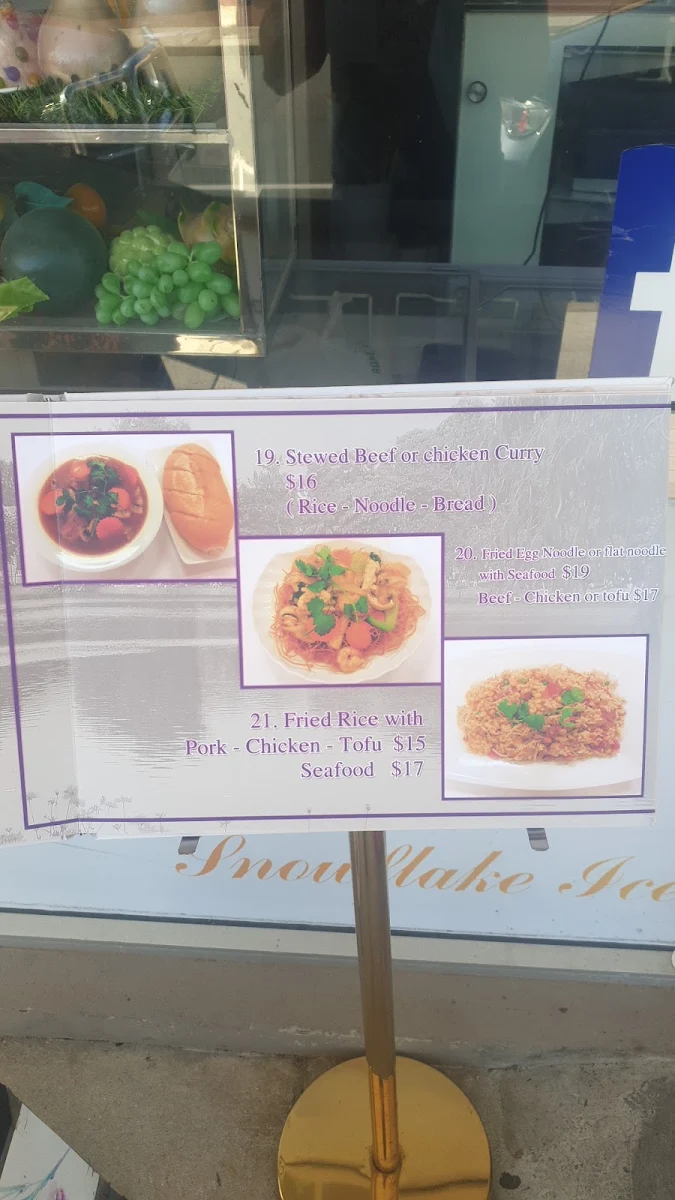 19. Stewed Beef or chicken Curry
$16
( Rice - Noodle - Bread )
20. Fried Egg Noodle or flat noodle
with Seafood $19
Beef - Chicken or tofu $17
21. Fried Rice with
Pork - Chicken - Tofu $15
Seafood $17
Snowflake Ice